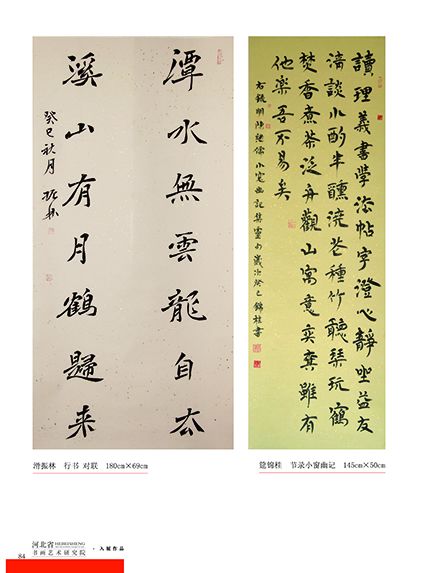 潭水無雲龍自去
溪山有月鶴歸来
癸巳秋月 振林
讀理義書學法帖字澄心靜坐益友
清談小酌半醺澆花種竹聽琴玩鶴
焚香煮茶泛舟觀山寓意奕棊雖有
他楽吾不易矣
右錄明陳繼儒小窗幽記集靈句歲次癸巳錦桂書
滑振林 行书 对联 180cm×69cm
锦桂 节录小窗幽记 145cm×50cm
河北省 HEBEISHENG
书画艺术研究院 · 入展作品
84